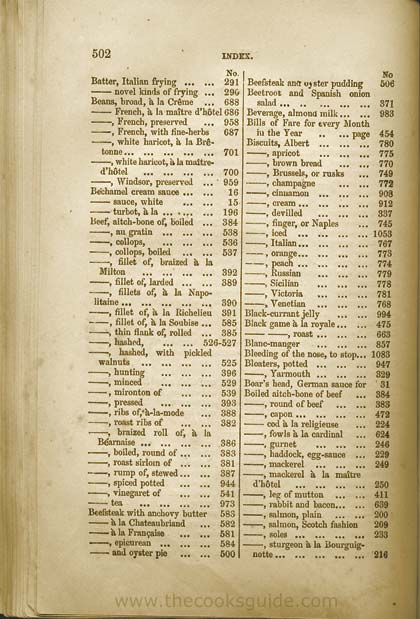 502
INDEX.
No.
Batter, Italian frying ... ... 291
—— novel kinds of frying ... 290
Beans, broad, à la Crême ... 688
—— French, à la maître d'hôtel 686
——, French, preserved ... 958
——, French, with fine-herbs 687
——, white haricot, à la Bré-
tonne ... ... ... ... ... 701
——, white haricot, à la maître-
d'hôtel ... ... ... ... 700
——, Windsor, preserved ... 959
Béchamel cream sauce ... ... 16
—— sauce, white ... ... 15
—— turbot, à la ... ... ... 196
Beef, aitch-bone of, boiled ... 384
——, au gratin ... ... ... 538
——, collops, ... ... ... 536
——, collops, boiled ... ... 537
——, fillet of, braized à la
Milton ... ... ... ... 392
——, fillet of, larded ... ... 389
——, fillets of, à la Napo-
litaine ... ... ... ... ... 390
——, fillet of, à la Richelieu 391
——, fillet of, à la Soubise ... 585
——, thin flank of, rolled ... 385
——, hashed, ... ... 526-527
——, hashed, with pickled
walnuts ... ... ... ... 525
——, hunting ... ... ... 396
——, minced ... ... ... 529
——, mironton of ... ... 539
——, pressed ... ... ... 393
——, ribs of, à-la-mode ... 388
——, roast ribs of ... ... 382
——, braized roll of, à la
Béarnaise ... ... ... ... 386
——, boiled, round of ... ... 383
——, roast sirloin of ... ... 381
——, rump of, stewed ... ... 387
——, spiced potted ... ... 944
——, vinegaret of ... ... 541
—— tea ... ... ... ... 973
Beefsteak with anchovy butter 583
—— à la Chateaubriand ... 582
—— à la Française ... ... 581
——, epicurean ... ... ... 584
—— and oyster pie ... ... 500
No
Beefsteak and oyster pudding 506
Beetroot and Spanish onion
salad ... ... ... ... ... 371
Beverage, almond milk ... ... 983
Bills of Fare for every Month
in the Year ... ... page 454
Biscuits, Albert ... ... ... 780
——, apricot ... ... ... 775
——, brown bread ... ... 770
——, Brussels, or rusks 749
——, champagne ... ... 772
——, cinnamon ... ... ... 903
——, cream ... ... ... ... 912
——, devilled ... ... ... 337
——, finger, or Naples ... 745
——, iced ... ... ... ... 1053
——, Italian ... ... ... ... 767
——, orange ... ... ... ... 773
——, peach ... ... ... ... 774
——, Russian ... ... ... 779
——, Sicilian ... ... ... 778
——, Victoria ... ... ... 781
——, Venetian ... ... ... 768
Black-currant jelly ... ... 994
Black game à la royale ... ... 475
——, ——, roast ... ... ... 663
Blanc-manger ... ... ... 857
Bleeding of the nose, to stop... 1083
Bloaters, potted ... ... ... 947
——, Yarmouth ... ... ... 329
Boar's head, German sauce for 31
Boiled aitch-bone of beef ... 384
——, round of beef ... ... 383
——, capon ... ... ... ... 472
—— cod à la religieuse ... 224
——, fowls à la cardinal ... 624
——, gurnet ... ... ... 246
——, haddock, egg-sauce ... 229
——, mackerel ... ... ... 249
——, mackerel à la maître
d'hôtel ... ... ... ... 250
——, leg of mutton ... ... 411
——, rabbit and bacon ... ... 639
——, salmon, plain ... ... 200
——, salmon, Scotch fashion 209
——, soles ... ... ... ... 233
——, sturgeon à la Bourguig-
notte ... ... ... ... ... 216
www.thecooksguide.com